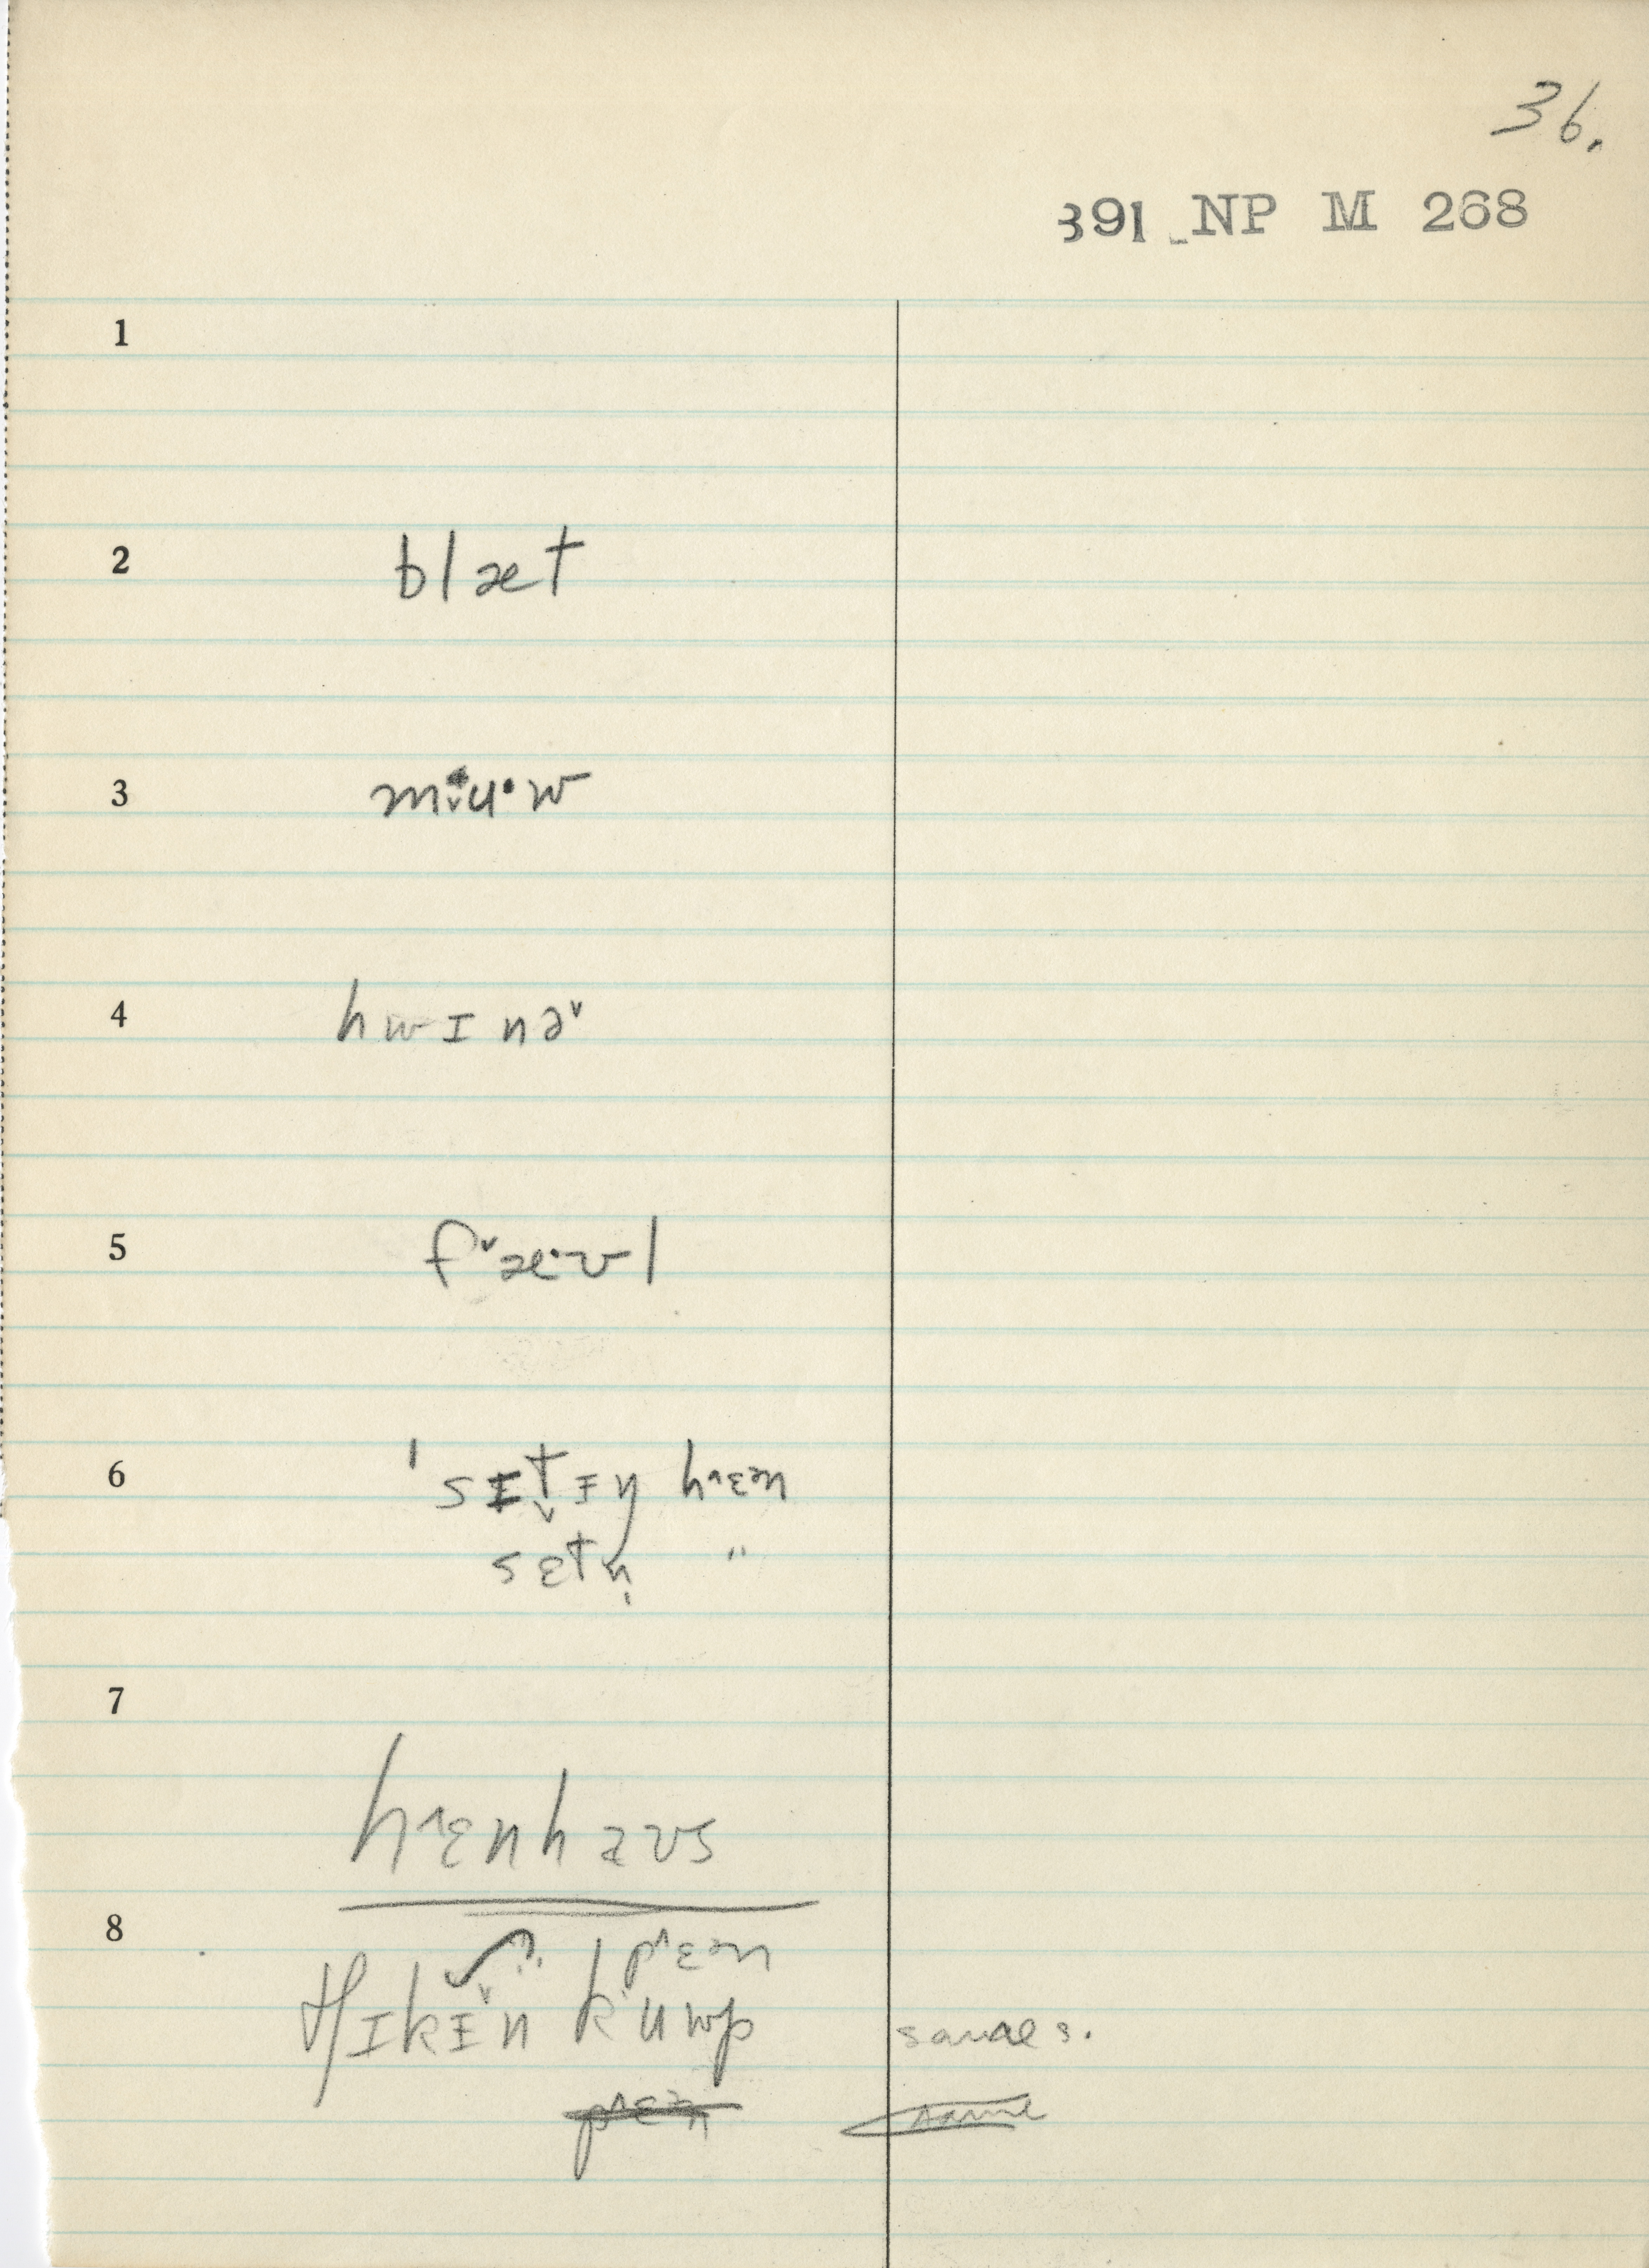 36.
391 NP M 268
1
2 blæt
3 mi˅u·w
4 hwɪnə˅
5 f˅æ·ʊl
6 'sɪtɪŋ h^ɛᵊn
sɛtn̩ "
7
h^ɛnhaʊs
8
p^ɛᵊn
tʃɪkɪ˅n k˅uwp
same s.